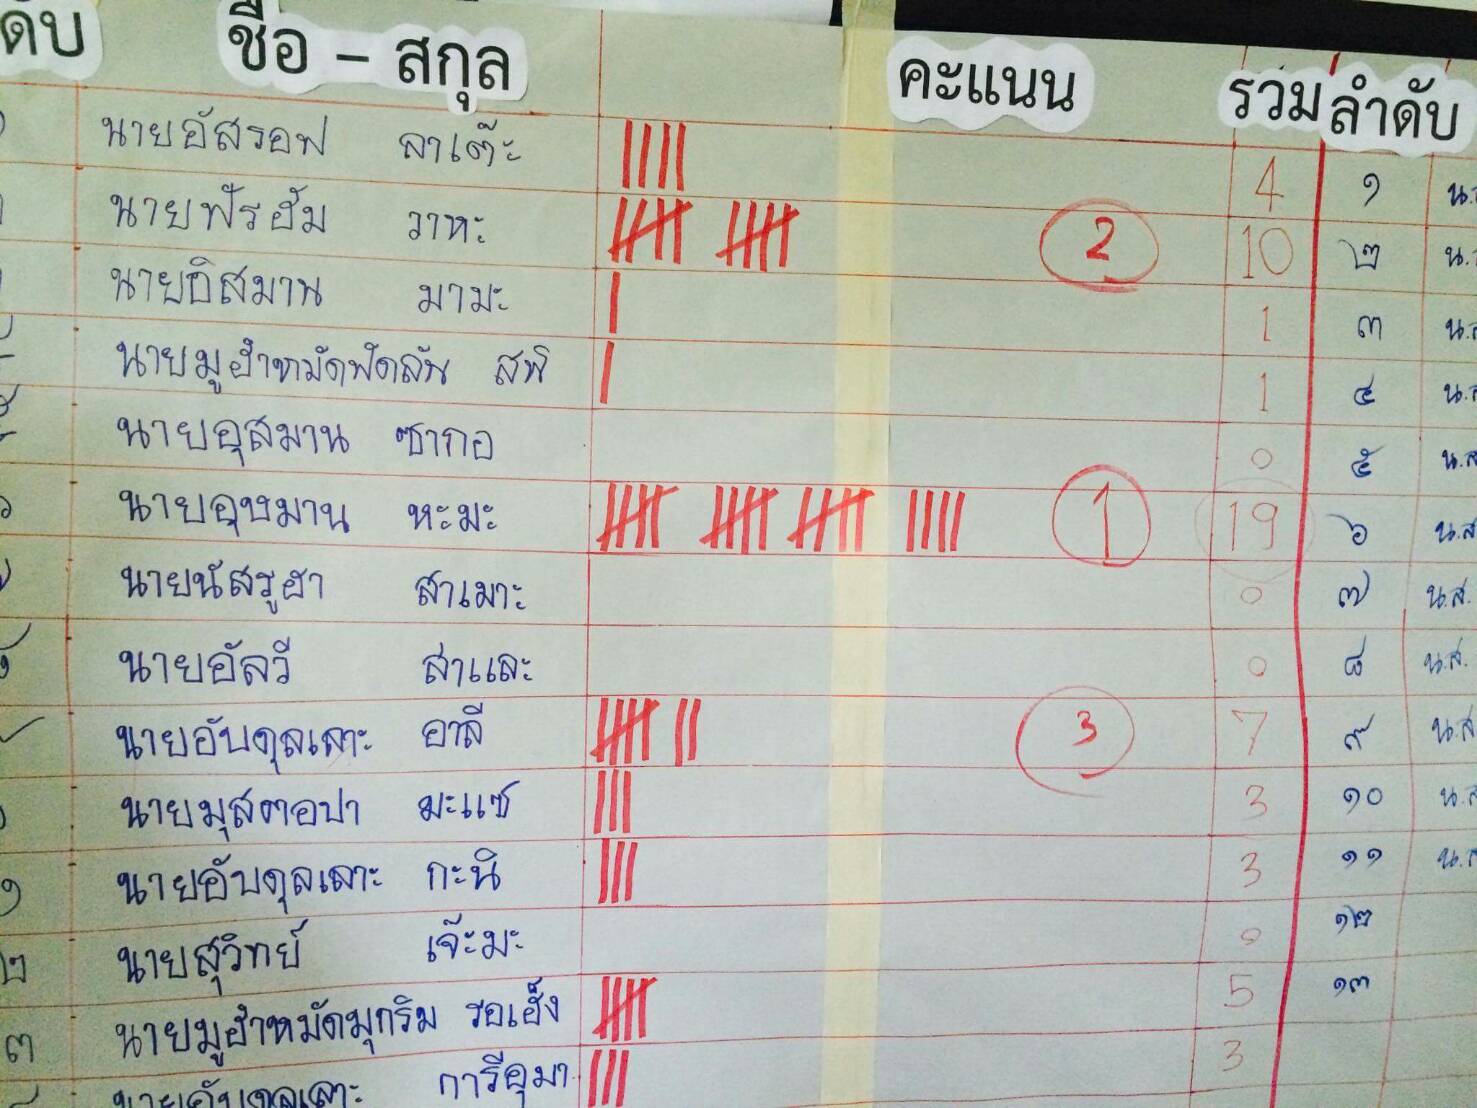 ดับ ชื่อ - สกุล คะแนน รวม ลำดับ
นายอัสรอฟ ลาเต๊ะ 4 ๑
นายฟัรฮัม วาหะ 2 10 ๒
นายอิสมาน มามะ 1 ๓
นายมูฮำหมัดฟัดลัน สฟิ 1 ๔
นายอุสมาน ซากอ 0 ๕ น.ส
๖ นายอุษมาน หะมะ 1 19 ๖ น.ส
นายนัสรูฮา สาเมาะ 0 ๗ น.ส.
นายอัลวี สาและ 0 ๘ น.ส.
นายอับดุลเลาะ อาลี 3 7 ๙ น.ส
นายมุสตอปา มะแซ 3 ๑๐ น.ส
นายอับดุลเลาะ กะนิ 3 ๑๑ น.ส
๒ นายสุวิทย์ เจ๊ะมะ 0 ๑๒
๓ นายมูฮำหมัดมุกริม รอเฮ็ง 5 ๑๓
นายอับดุลเลาะ การีอุมา 3